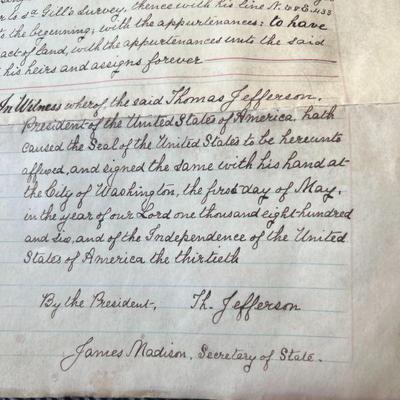 to sd Gill's Survey, thence with his line N.
the beginning; with the appurtenances: to have
act of land, with the appurtenances unto the said
his heirs and assigns forever
In Witness wherof, the said Thomas Jefferson,
President of the United States of America, hath
caused the Seal of the United States to be hereunto
affixed, and signed the same with his hand at
the City of Washington, the first day of May,
in the year of our Lord one thousand eight hundred
and six, and of the Independence of the United
States of America the thirtieth
By the President, Th. Jefferson
James Madison, Secretary of State.